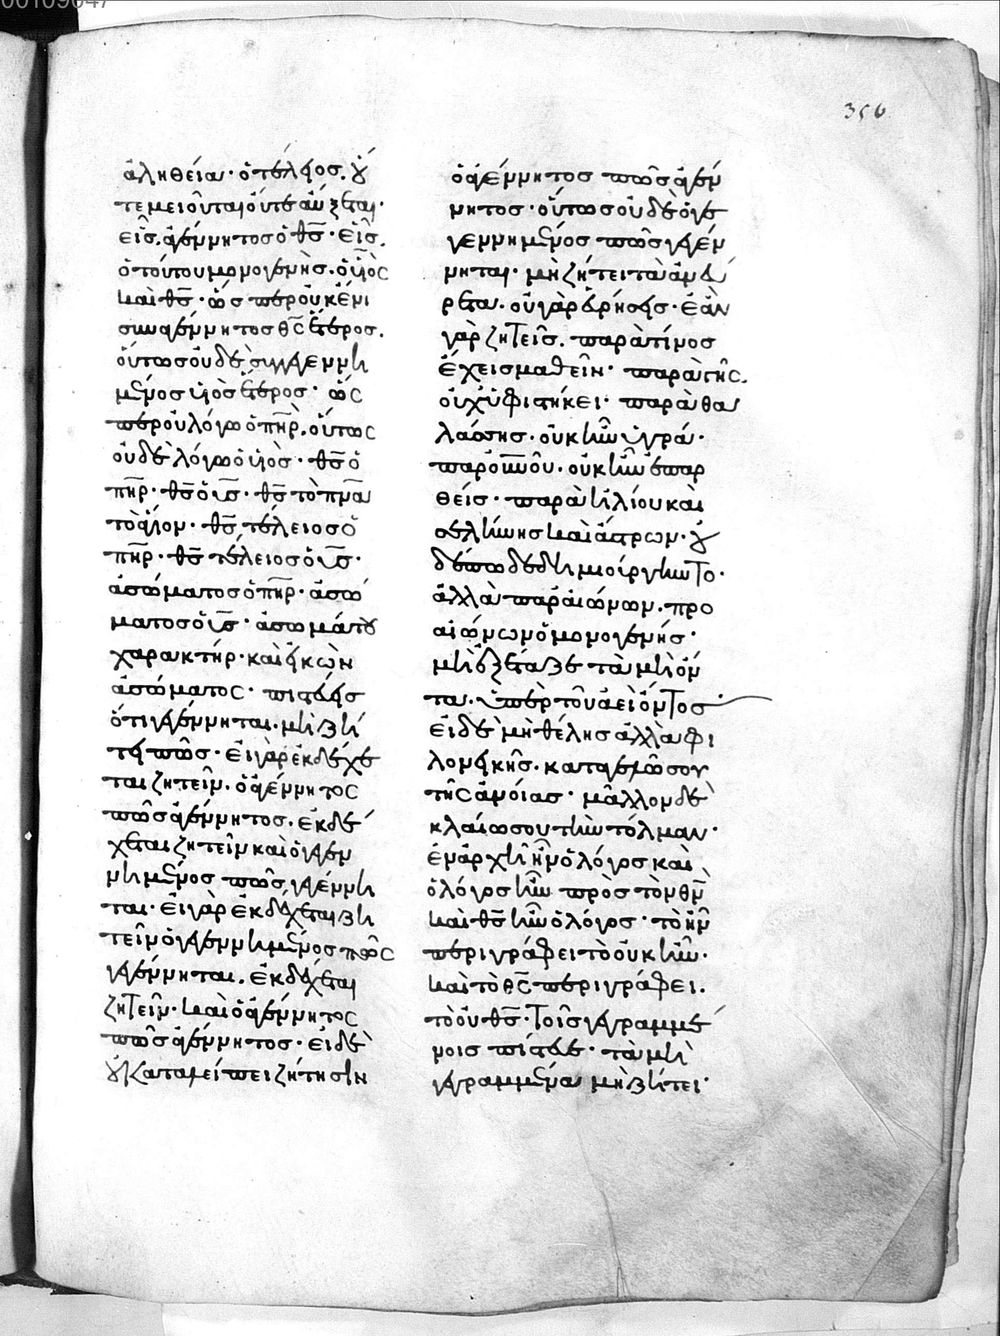 356
ἀληθεία· ὁ τέλειος. οὐ
τε μειοῦται οὔτε αὔξεται·
εἷς ἀγέννητος ὁ θς· εἷς
ὁ τούτου μονογενὴς. ὁ υἱὸς
καὶ θς· ὥσπερ οὐκ ἔνι
συναγέννητος θς ἕτερος.
οὕτως οὐδὲ συγγεννη
μένος υἱὸς ἕτερος· ὥς
περ οὐ λόγω ὁ πηρ. οὕτως
οὐδὲ λόγω ὁ υἱὸς· θς ὁ
πηρ· θς ὁ υς· θς τὸ πνα
τὸ ἅγιον· θς τέλειος ὁ
πηρ· θς τέλειος ὁ υς·
ἀσώματος ὁ πηρ· ἀσώ
ματος ὁ υς· ἀσωμάτου
χαρακτήρ· καὶ εἰκὼν
ἀσώματος· πιστεύεις
ὅτι γεγέννηται. μὴ ζή
τει πῶς· εἰ γὰρ ἐκδέχε
ται ζητεῖν. ὁ ἀγέννητος
πῶς ἀγέννητος. ἐκδέ
χεται ζητεῖν καὶ ὁ γεγεν
νημένος πῶς γεγέννη
ται· εἰ γὰρ ἐκδέχεται ζη
τεῖν ὁ γεγεννημένος πῶς
γεγέννηται. ἐκδέχεται
ζητεῖν· καὶ ὁ ἀγέννητος
πῶς ἀγέννητος· εἰ δὲ
οὐ καταλείπει ζήτησιν
ὁ ἀγέννητος πῶς ἀγέν
νητος· οὕτως οὐδὲ ὁ γε
γεννημένος πῶς γεγέν
νηται· μὴ ζήτει τὰ ἀνεύ
ρετα. οὐ γὰρ εὑρήσεις· ἐὰν
γὰρ ζητεῖς. παρὰ τίνος
ἔχεις μαθεῖν· παρὰ γῆς.
οὐχ ὑφιστήκει· παρὰ θα
λάσσης. οὐκ ἦν ὑγρά·
παρ οὐνοῦ. οὐκ ἦν ἐπαρ
θείς· παρὰ ἡλίου καὶ
σελήνης καὶ ἄστρων· οὐ
δέπω δεδημιούργηντο·
ἀλλὰ παρ αἰώνων. προ
αἰώνων ὁ μονογενής·
μὴ ἐξέταζε τὰ μὴ ὄν
τα. ὑπὲρ τοῦ ἀεὶ ὄντος
εἰ δὲ μὴ θέλης ἀλλὰ φι
λονεικῆς. καταγελῶ σου
τῆς ἀνοίας· μᾶλλον δὲ
κλαίω σου τὴν τόλμαν·
ἐν ἀρχῆ ἦν ὁ λόγος καὶ
ὁ λόγος ἦν πρὸς τὸν θν
καὶ θς ἦν ὁ λόγος· τὸ ἦν
περιγράφει τὸ οὐκ ἦν·
καὶ τὸ θς περιγράφει.
τὸ οὐ θς· τοῖς γεγραμμέ
νοις πίστευε· τὰ μὴ
γεγραμμένα μὴ ζήτει·